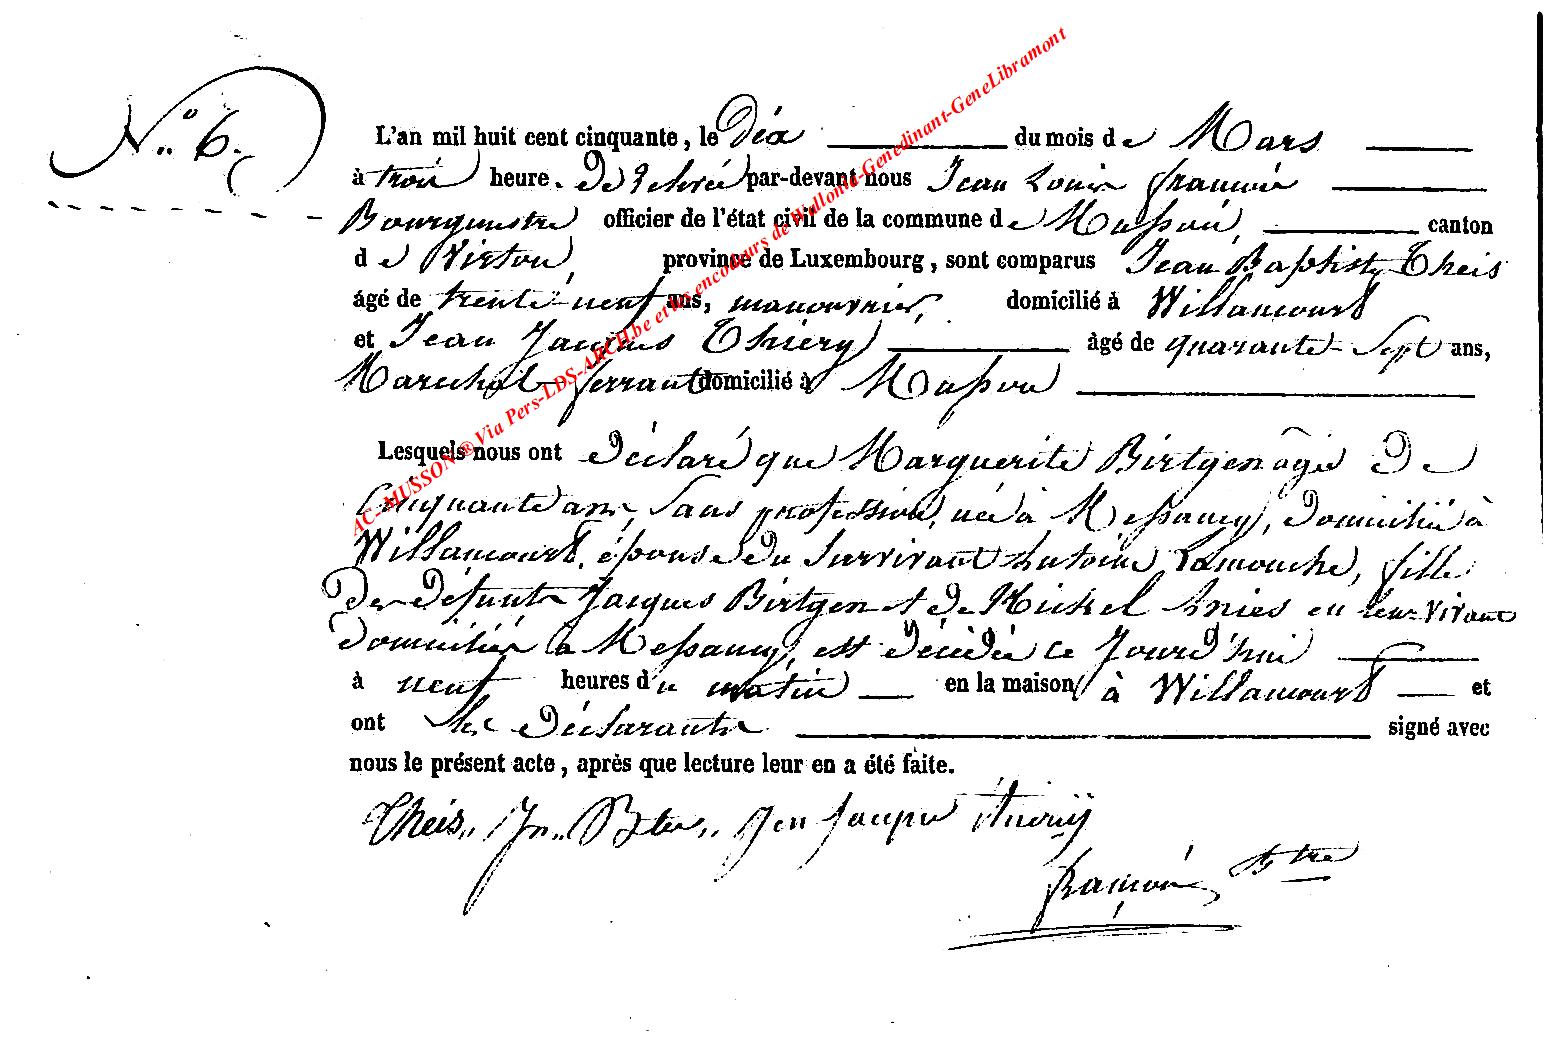 N.º 6.
L'an mil huit cent cinquante, le Dix du mois de Mars
à trois heure. De relevée par-devant nous Jean Louis François
Bourgmestre officier de l'état civil de la commune de Musson, canton
de Virton, province de Luxembourg, sont comparus Jean Baptiste Theis
âgé de trente-neuf ans, manouvrier, domicilié à Willancourt
et Jean Jacques Thiery âgé de quarante-Sept ans,
Maréchal-ferrant domicilié à Musson
Lesquels nous ont Déclaré que Marguerite Birtgen âgée De
Cinquante ans, Sans profession, née à Messancy, Domiciliée à
Willancourt, épouse du Survivant Antoine Lamouche, fille
Des Défunts Jacques Birtgen et de Michel Anies en leur vivant
Domiciliés à Messancy, est Décédée ce Jourd'hui
à neuf heures du matin en la maison à Willancourt et
ont les Déclarants signé avec
nous le présent acte, après que lecture leur en a été faite.
Theis,, Jn,, Bte,, Jean Jacque thiery
françois Bstre
AC-MUSSON ® Via Pers-LDS-ARCH.be et les encodeurs de Wallonia-Genedinant-GeneLibramont